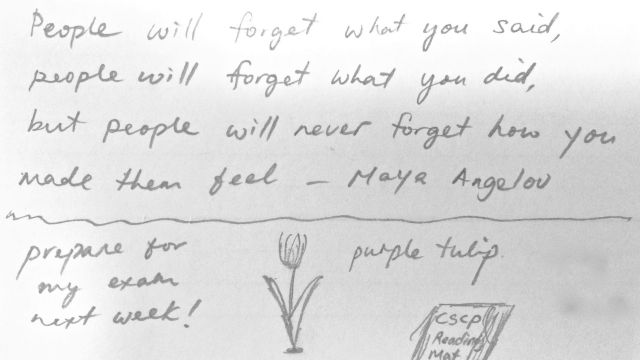 People will forget what you said,
people will forget what you did,
but people will never forget how you
made them feel – Maya Angelou
prepare for
my exam
next week!
purple tulip.
CSCP
Reading
Mat